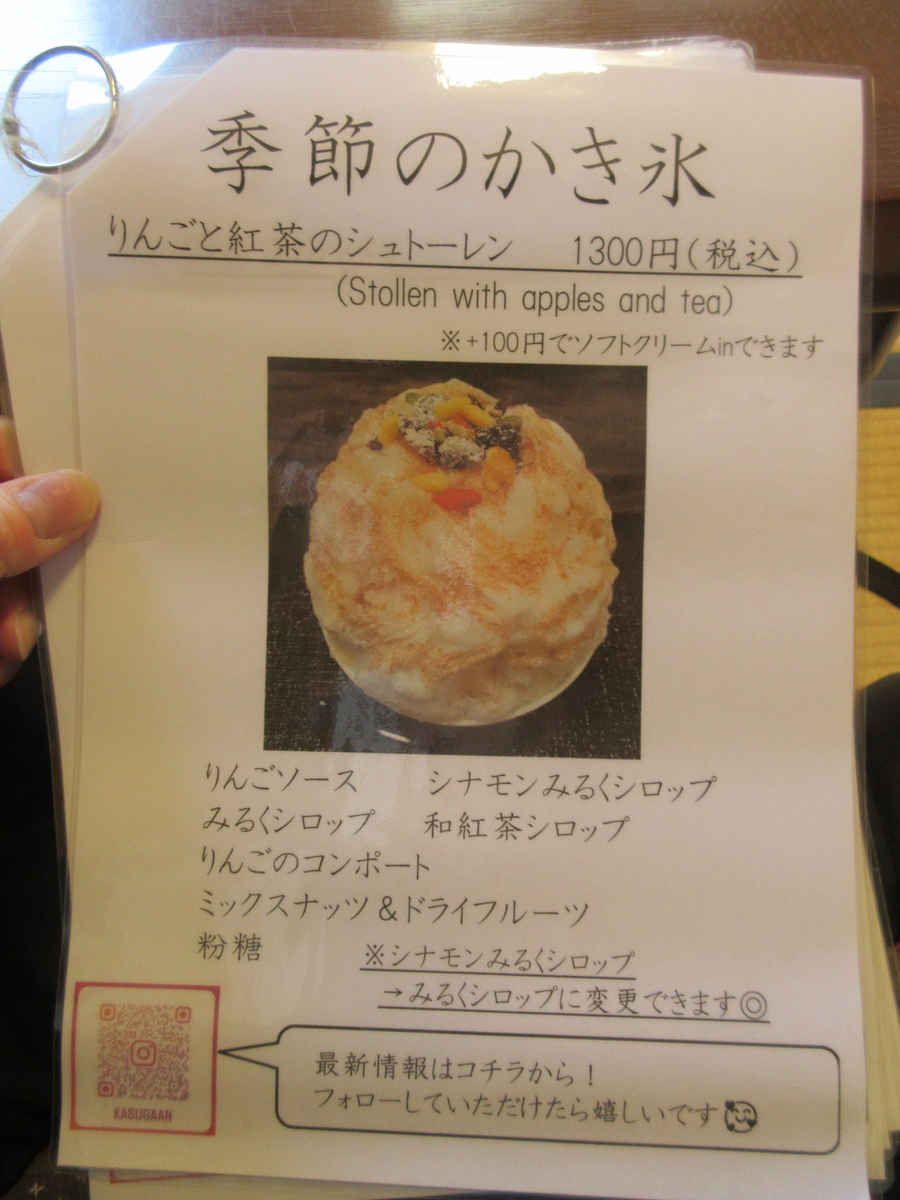 季節のかき氷
りんごと紅茶のシュトーレン 1300円(税込)
(Stollen with apples and tea)
※+100円でソフトクリームinできます
りんごソース シナモンみるくシロップ
みるくシロップ 和紅茶シロップ
りんごのコンポート
ミックスナッツ&ドライフルーツ
粉糖
※シナモンみるくシロップ
→みるくシロップに変更できます◎
KASUGAAN
最新情報はコチラから!
フォローしていただけたら嬉しいです🥰